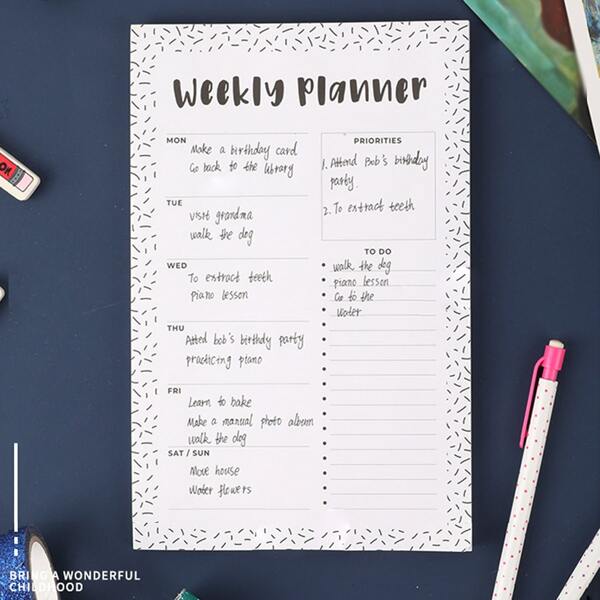 Weekly Planner
MON
Make a birthday card
Go back to the library
TUE
visit grandma
walk the dog
WED
To extract teeth
piano lesson
THU
Atted bob's birthdy party
practicing piano
FRI
Learn to bake
Make a manual photo album
walk the dog
SAT / SUN
Move house
Water flowers
PRIORITIES
1. Attend Bob's birthday
party.
2. To extract teeth
TO DO
walk the dog
piano lesson
Go to the
water
BRING A WONDERFUL
CHILDHOOD